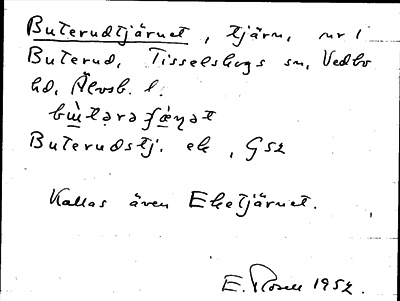 Buterudtjärnet, tjärn, nr i
Buterud, Tisselskogs sn, Vedbo
hd, Älvsb. l.
Buterudstj. ek, GSZ
Kallas även Eketjärnet.
E. Rosell 1952.